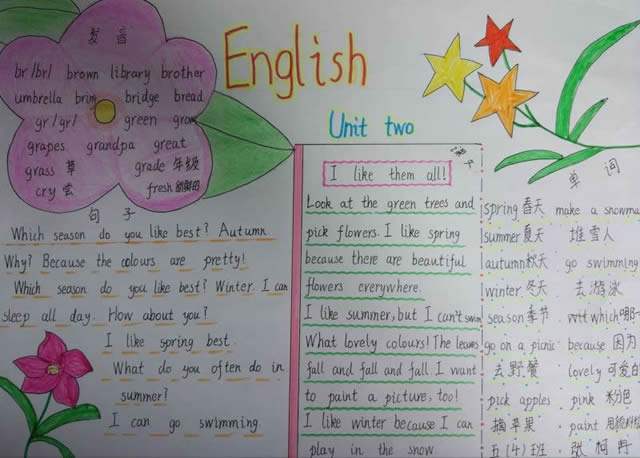 English
Unit two
发音
br/br/ brown library brother
umbrella brim bridge bread
gr/gr/ green grow
grapes grandpa great
grass 草 grade 年级
cry 尝 fresh 新鲜的
句子
Which season do you like best? Autumn.
Why? Because the colours are pretty!
Which season do you like best? Winter. I can
sleep all day. How about you?
I like spring best.
What do you often do in
summer?
I can go swimming.
I like them all!
Look at the green trees and
pick flowers. I like spring
because there are beautiful
flowers everywhere.
I like summer, but I can't swim
What lovely colours! The leaves
fall and fall and fall. I want
to paint a picture, too!
I like winter because I can
play in the snow
单词
spring 春天 make a snowma
summer 夏天 堆雪人
autumn 秋天 go swimming
winter 冬天 去游泳
season 季节 which 哪一
go on a picnic because 因为
去野餐 lovely 可爱的
pick apples pink 粉色
摘苹果 paint
五(4)班 张柯